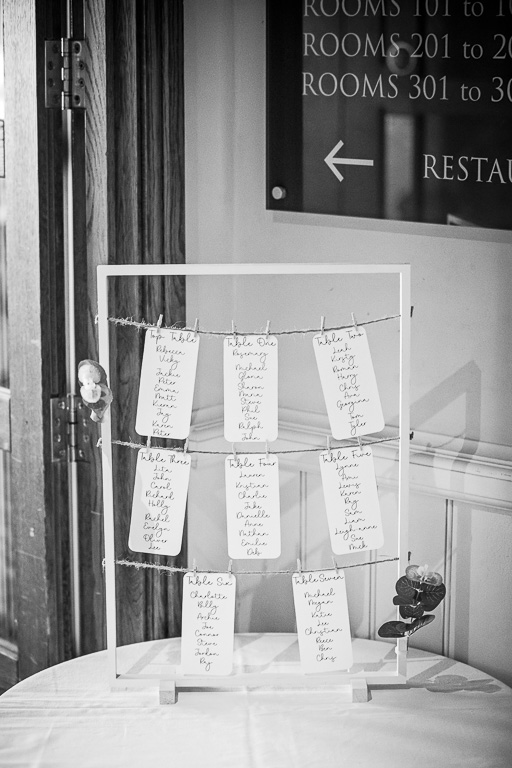 ROOMS 101 to 1
ROOMS 201 to 20
ROOMS 301 to 30
← RESTAU
Top Table
Rebecca
Vicky
Jackie
Peter
Emma
Matt
Kieran
Jay
Karen
Peter
Table One
Rosemary
Michael
Gloria
Sharon
Maria
Steve
Phil
Sue
Ralph
John
Table Two
Leah
Kirsty
Roman
Harry
Chris
Ava
Georgina
Tom
Tyler
Table Three
Lita
John
Carol
Richard
Holly
Rachel
Evelyn
Oliver
Lee
Table Four
Lauren
Kristian
Charlie
Jake
Danielle
Anne
Nathan
Emilia
Deb
Table Five
Lynne
Ami
Lewis
Karen
Ray
Sam
Liam
Leigh anne
Sue
Mick
Table Six
Charlotte
Billy
Archie
Joe
Connor
Steve
Jordan
Ray
Table Seven
Michael
Megan
Katie
Lee
Christian
Reece
Ben
Chris